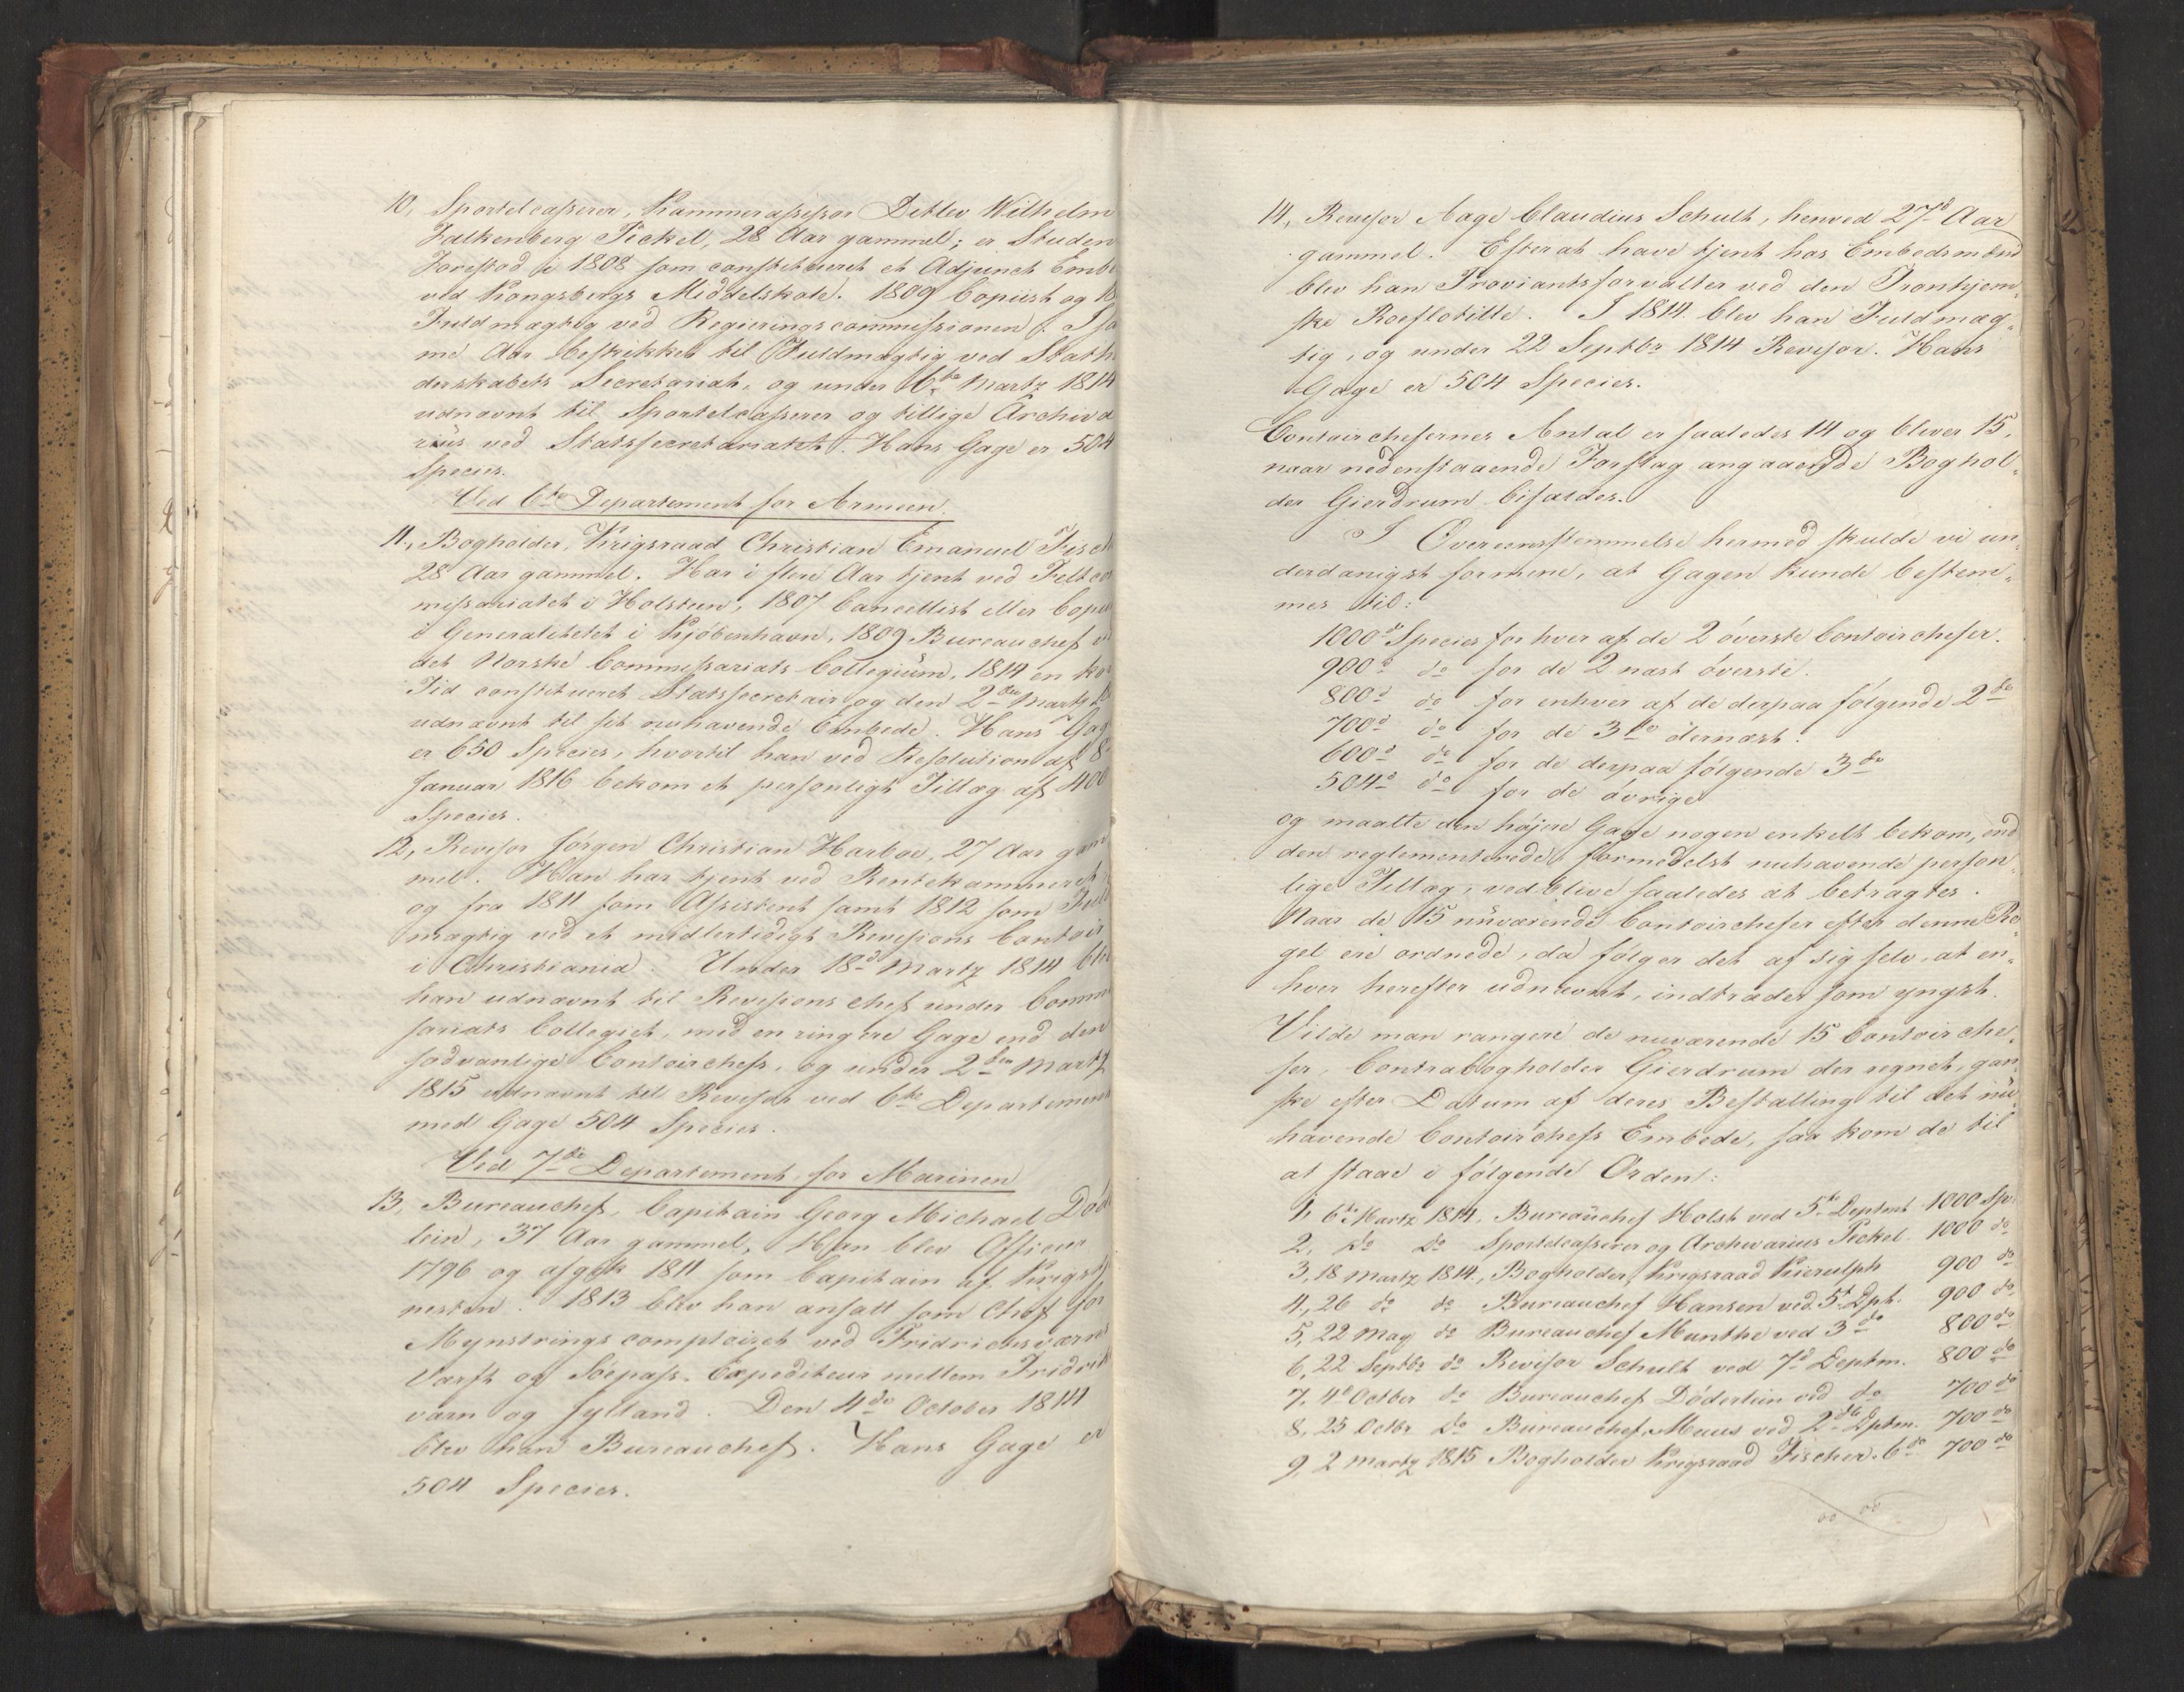 10, Sportelcasserer, Kammerassessor Detlev Wilhelm
Falkenberg Peckel, 28 Aar gammel; er Studen
Forestod i 1808 som constitueret et Adjunct Embe
ved Kongsbergs Middelskole. 1809 Copiist og 18
Fuldmægtig ved Regieringscommissionen. I sa
me Aar beskikket til Fuldmægtig ved Stath
derskabets Secretariat, og under 6te Martz 1814
udnævnt til Sportelcasserer og tillige Archiva
rius ved Statssecretariatet. Hans Gage er 504
Species.
Ved 6te Departement for Armeen.
11, Bogholder, Krigsraad Christian Emanuel Fisch
28 Aar gammel. Har i flere Aar tjent ved Feltcom
missariatet i Holsteen, 1807 Cancellist eller Copii
i Generalitetet i Kjöbenhavn, 1809 Bureauchef v
det Norske Commissariats Collegium, 1814 en kor
Tid constitueret Statssecretair og den 2den Martz 18
udnævnt til sit nuhavende Embede. Hans Gag
er 650 Species, hvortil han ved Resolution af 8
Januar 1816 bekom et personligt Tillæg af 400
Species.
12, Revisor Jörgen Christian Harboe, 27 Aar gam
mel. Han har tjent ved Rentekammeret
og fra 1811 som Assistent samt 1812 som Fuld
mægtig ved et midlertidigt Revisions Contoir
i Christiania. Under 18d Martz 1814 blev
han udnævnt til Revisions chef under Commis
sariats Collegiet, med en ringere Gage end den
sædvanlige Contoirchefs, og under 2den Martz
1815 udnævnt til Revisor ved 6te Departement
med Gage 504 Species.
Ved 7de Departement for Marinen
13, Bureauchef, Capitain Georg Michael Död
lein, 37 Aar gammel. Han blev Officeer
1796 og afgik 1811 som Capitain af Krigstj
nesten. 1813 blev han ansatt som Chef for
Mynstringscomptoiret ved Fridrichsværns
Værft og Söepass-Expediteur mellem Fridrichs
værn og Jylland. Den 4de October 1814
blev han Bureauchef. Hans Gage er
504 Species.
14, Revisor Aage Claudius Schult, henved 27d Aar
gammel. Efterat have tjent hos Embedsmænd
blev han Proviantsforvalter ved den Tronhjem„
ske Roeflotille. I 1814 blev han Fuldmæg„
tig, og under 22 Septbr 1814 Revisor. Hans
Gage er 504 Species.
Contoirchefernes Antal er saaledes 14 og bliver 15,
naar nedenstaaende Forslag angaaende Boghol„
der Gierdrum bifaldes.
I Overeensstemmelse hermed skulde vi un„
derdanigst formene, at Gagen kunde bestem„
mes til:
1000d Species for hver af de 2 överste Contoirchefer.
900d do for de 2 næst överste.
800d do for enhver af de derpaa fölgende 2de
700d do for de 3de dernæst.
600d do for de derpaa fölgende 3de
504d do for de övrige
og maatte den höjere Gage nogen enkelt bekom, end
den reglementerede, formedelst nuhavende person„
lige Tillæg, vedblive saaledes at betragtes.
Naar de 15 nuværende Contoirchefer efter denne Re„
gel ere ordnede, da fölger det af sig selv, at en„
hver herefter udnævnt, indtræder som yngst.
Vilde man rangere de nuværende 15 Contoirche„
fer, Contrabogholder Gierdrum der regnet, gan„
ske efter Datum af deres Bestalling til det nu„
havende Contoirchefs Embede, saa kom de til
at staae i fölgende Orden:
1, 6te Martz 1814, Bureauchef Holst ved 5te Deptmt 1000 Sp:
2, do do Sportelcasserer og Archivarius Peckel 1000 do
3, 18 Martz 1814, Bogholder, Krigsraad Kierulph 900 do
4, 26 do do Bureauchef Hansen ved 5t Dpt. 900 do
5, 22 May do Bureauchef Munthe ved 3die 800 do
6, 22 Septbr do Revisor Schult ved 7d Deptm. 800 do
7, 4d Octber do Bureauchef Döderlein ved do 700 do
8, 25 Octbr do Bureauchef Muus ved 2det Dptm. 700 do
9, 2 Martz 1815 Bogholder Krigsraad Fischer. 6te 700 do